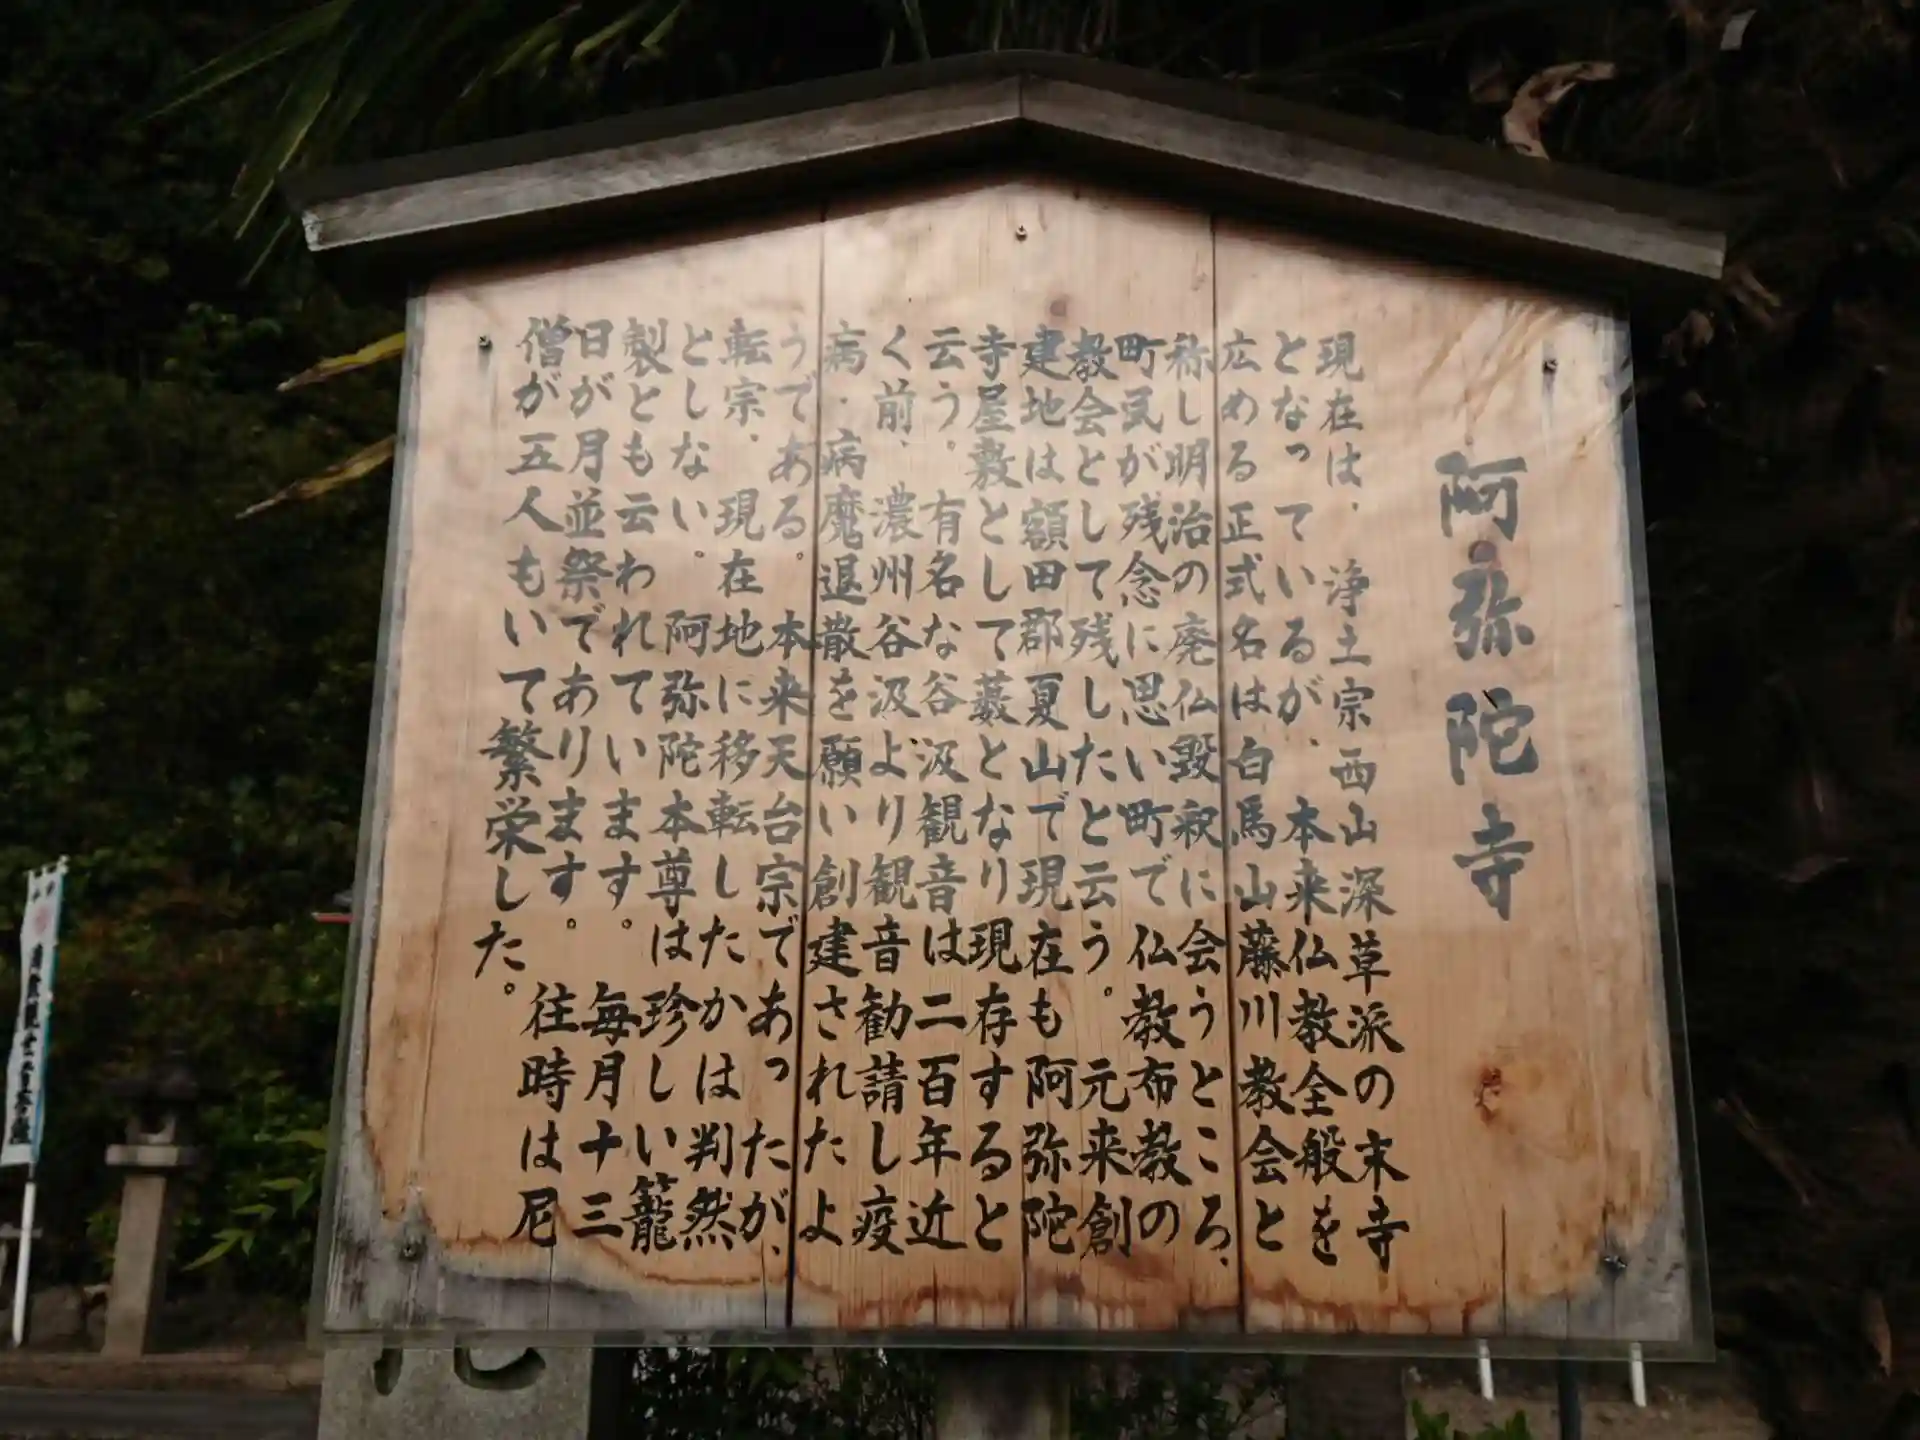 阿弥陀寺
現在は、浄土宗西山深草派の末寺
となっているが、本来仏教全般を
広める正式名は白馬山藤川教会と
称し明治の廃仏毀釈に会うところ、
町民が残念に思い町で仏教布教の
教会として残したと云う。元来創
建地は額田郡夏山で現在も阿弥陀
寺屋敷として藪となり現存すると
云う。有名な谷汲観音は二百年近
く前、濃州谷汲より観音勧請し疫
病・病魔退散を願い創建されたよ
うである。本来天台宗であったが、
転宗、現在地に移転したかは判然
としない。阿弥陀本尊は珍しい籠
製とも云われています。毎月十三
日が月並祭であります。往時は尼
僧が五人もいて繁栄した。